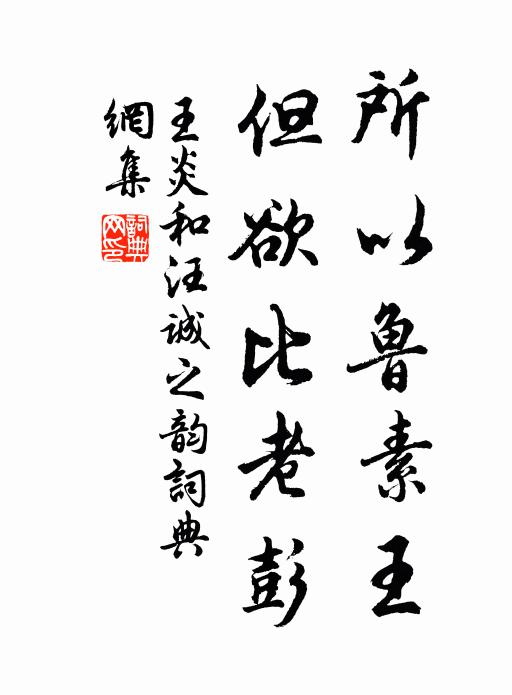 所以魯素王
但欲比老彭
王炎和汪誠之韵詞典
網集
詞典网印